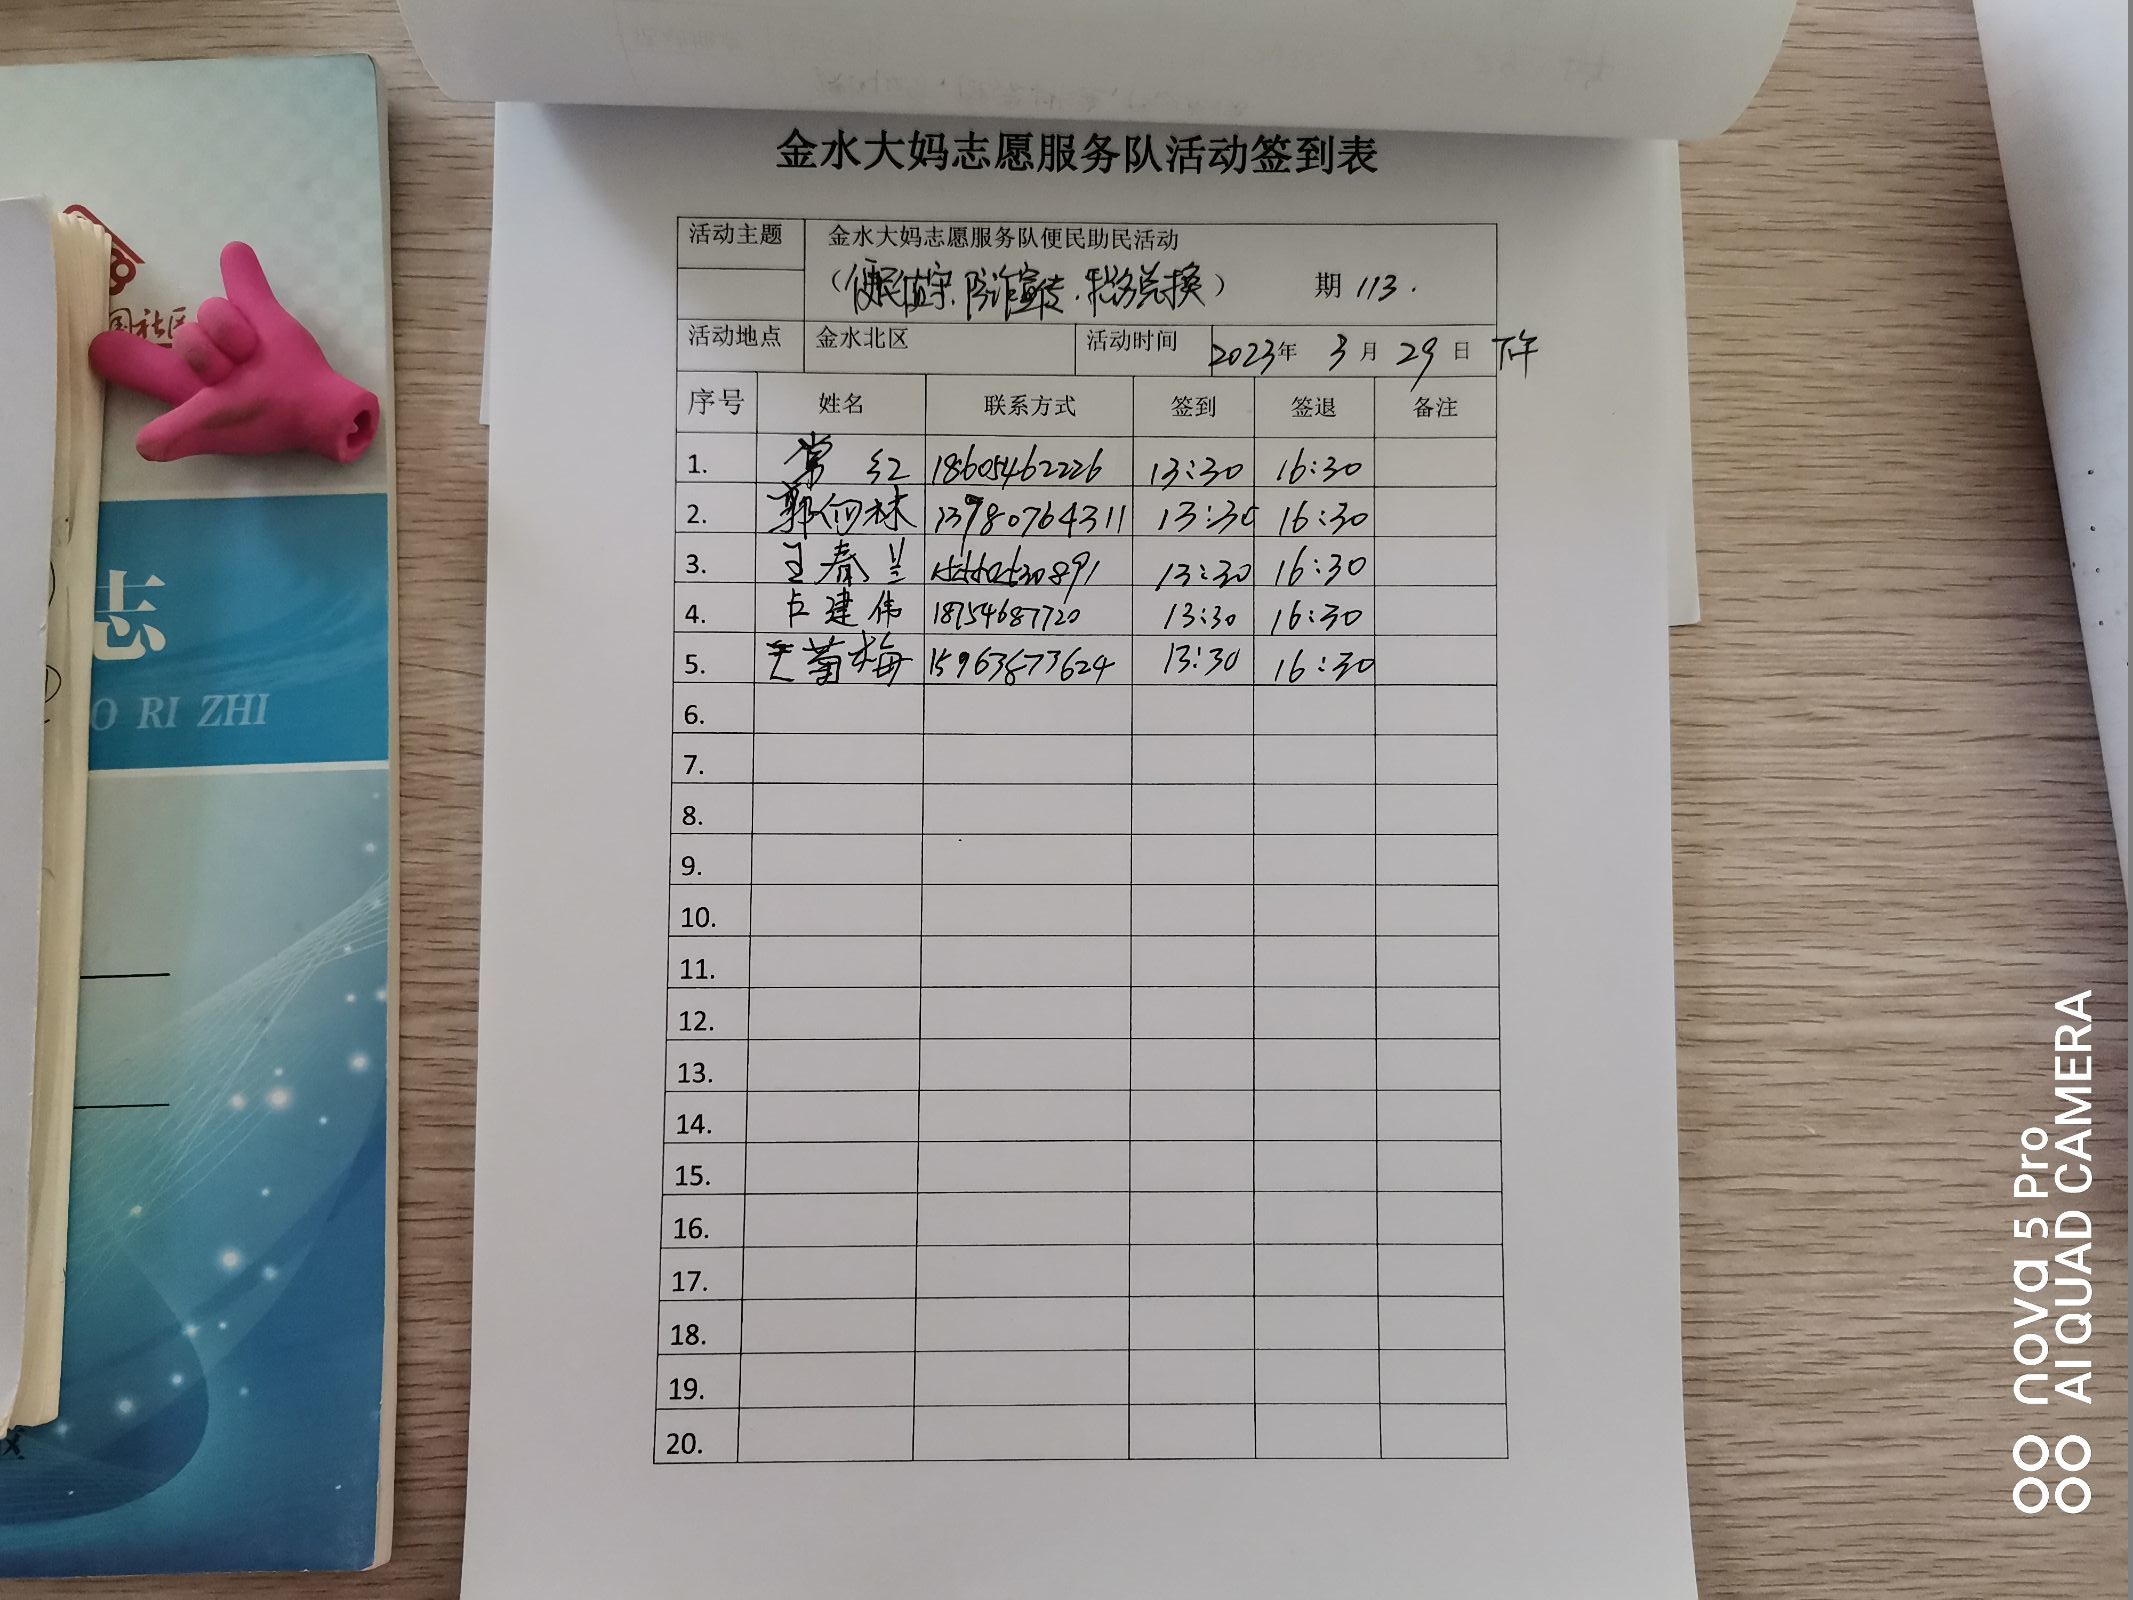 金水大妈志愿服务队活动签到表
活动主题 金水大妈志愿服务队便民助民活动
(便民值守.防诈宣传.积分兑换) 期 113.
活动地点 金水北区 活动时间 2023年 3月 29日 下午
序号 姓名 联系方式 签到 签退 备注
1. 常红 18605462226 13:30 16:30
2. 郭向林 13780764311 13:30 16:30
3. 王春兰 13:30 16:30
4. 卢建伟 18754687720 13:30 16:30
5. 王菊梅 15963873624 13:30 16:30
6.
7.
8.
9.
10.
11.
12.
13.
14.
15.
16.
17.
18.
19.
20.
志
O RI ZHI
nova 5 Pro
AI QUAD CAMERA